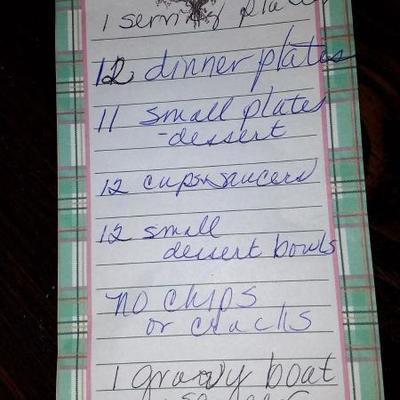 1 serving platter
12 dinner plates
11 small plates
-dessert
12 cups & saucers
12 small
dessert bowls
no chips
or cracks
1 gravy boat